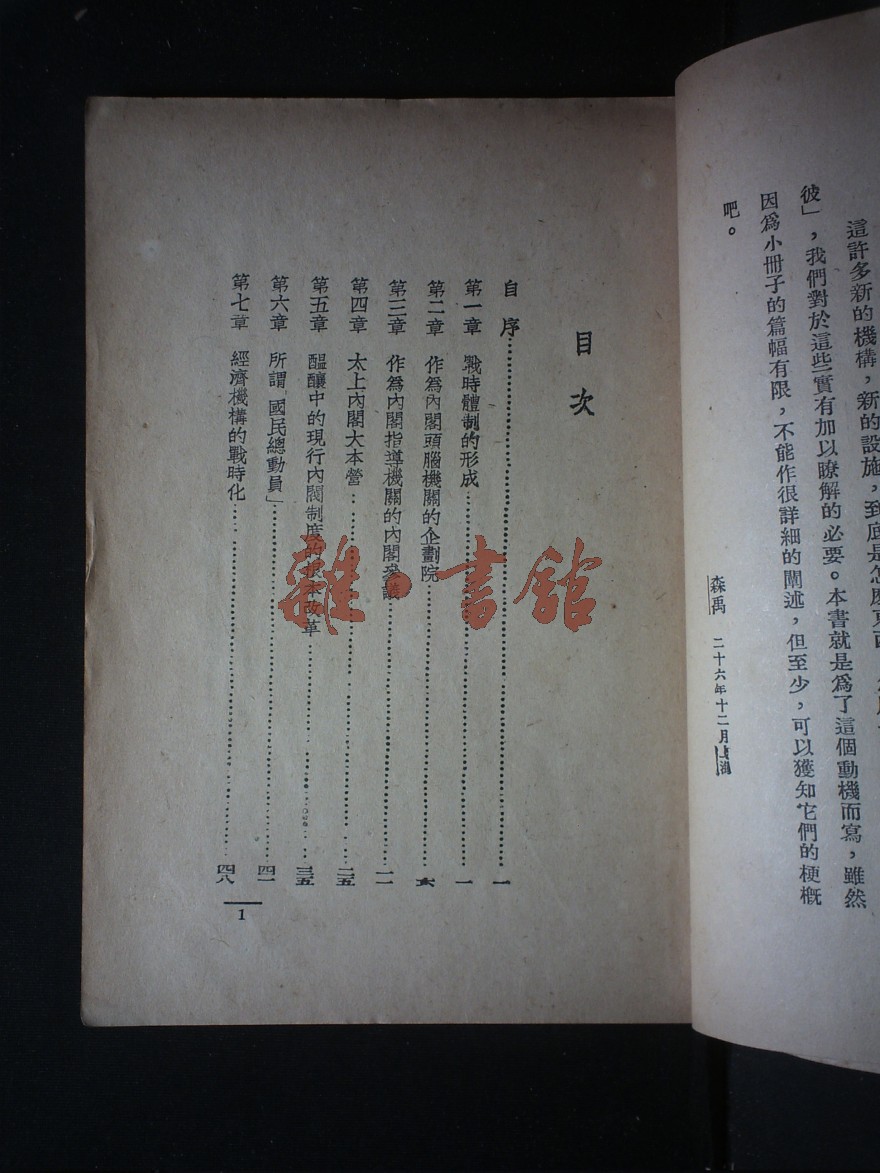 這許多新的機構，新的設施，到底是怎麼東西
彼」，我們對於這些實有加以瞭解的必要。本書就是爲了這個動機而寫，雖然
因爲小冊子的篇幅有限，不能作很詳細的闡述，但至少，可以獲知它們的梗概
吧。
森禹 二十六年十二月上海
目次
自序 一
第一章 戰時體制的形成 一
第二章 作爲內閣頭腦機關的企劃院 六
第三章 作爲內閣指導機關的內閣參議 一一
第四章 太上內閣大本營 二五
第五章 醞釀中的現行內閣制度的根本改革 三五
第六章 所謂「國民總動員」 四一
第七章 經濟機構的戰時化 四八
1
雜·書館